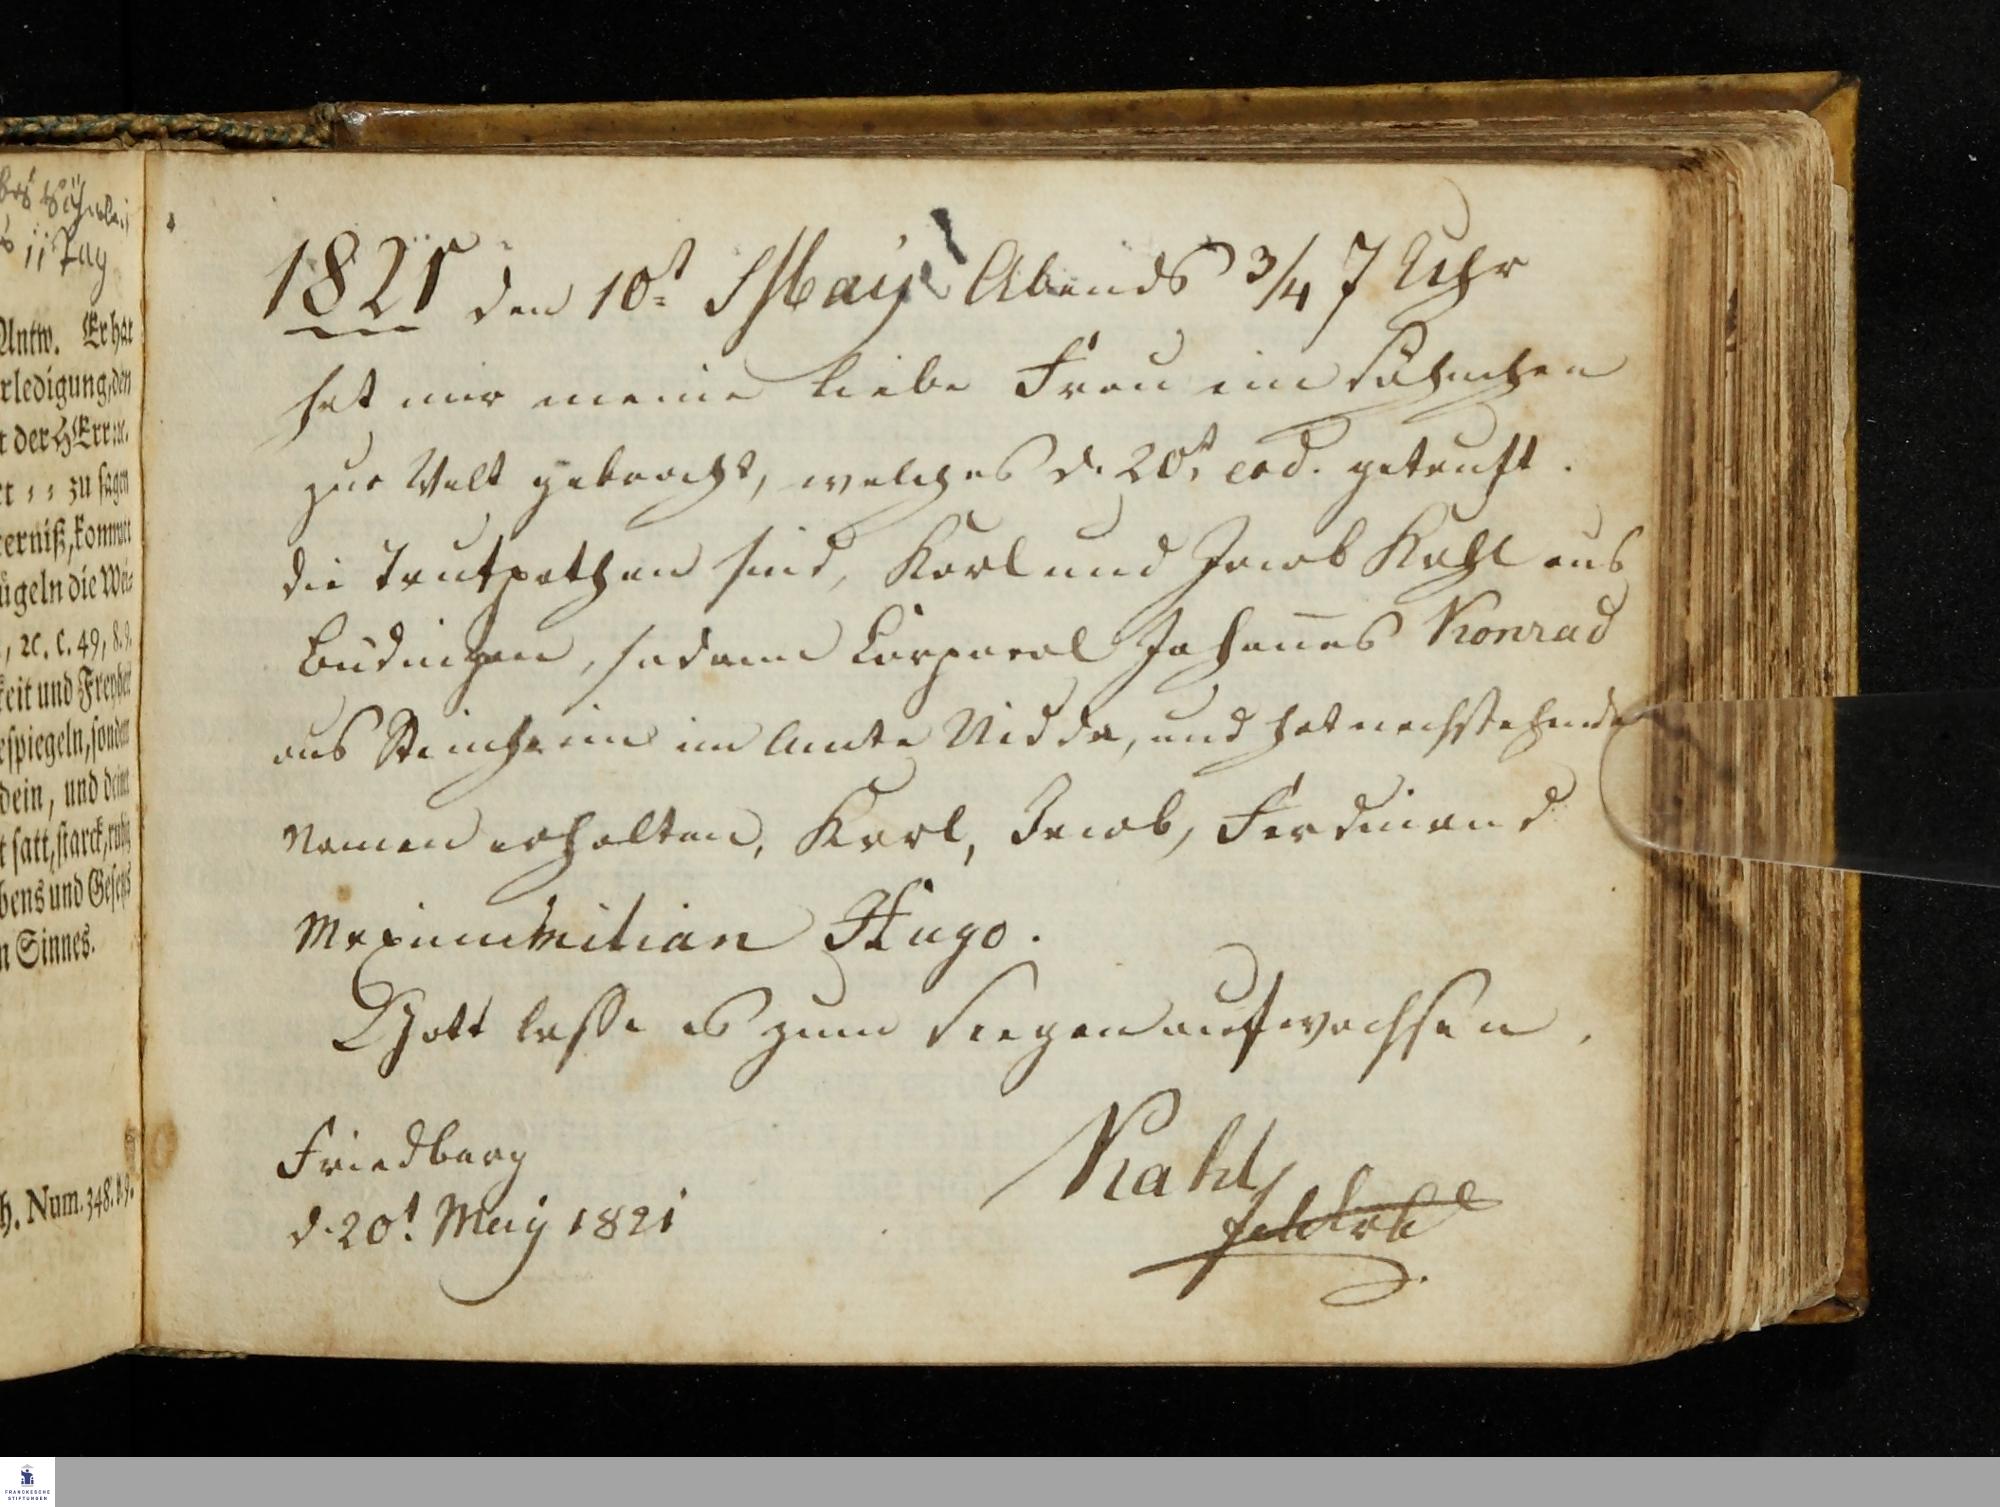 bens und Gesetzes
n Sinnes.
h. Num. 348. v. 9.
Antw. Er hat
rledigung, den
t der HErr :c.
et : : zu sagen
terniß, kommet
ügeln die Wei=
, 2c. c. 49, 8. 9.
keit und Freyheit
espiegeln, sondern
dein, und deine
t satt, starck, ruhig
11 Tag
1821 den 10t May Abends 3/4 7 Uhr
hat mir meine liebe Frau ein Söhnchen
zur Welt gebracht, welches d. 20t eod. getauft.
die Taufpathen sind, Karl und Jacob Kahl aus
Büdingen, sodann Corporal Johannes Konrad
aus Steinheim im Amte Nidda, und hat nachstehende
Namen erhalten, Karl, Jacob, Ferdinand
Maximilian Hugo.
Gott lasse es zum Seegen aufwachsen,
Friedberg
d. 20t May 1821
Kahl
FRANCKESCHE
STIFTUNGEN